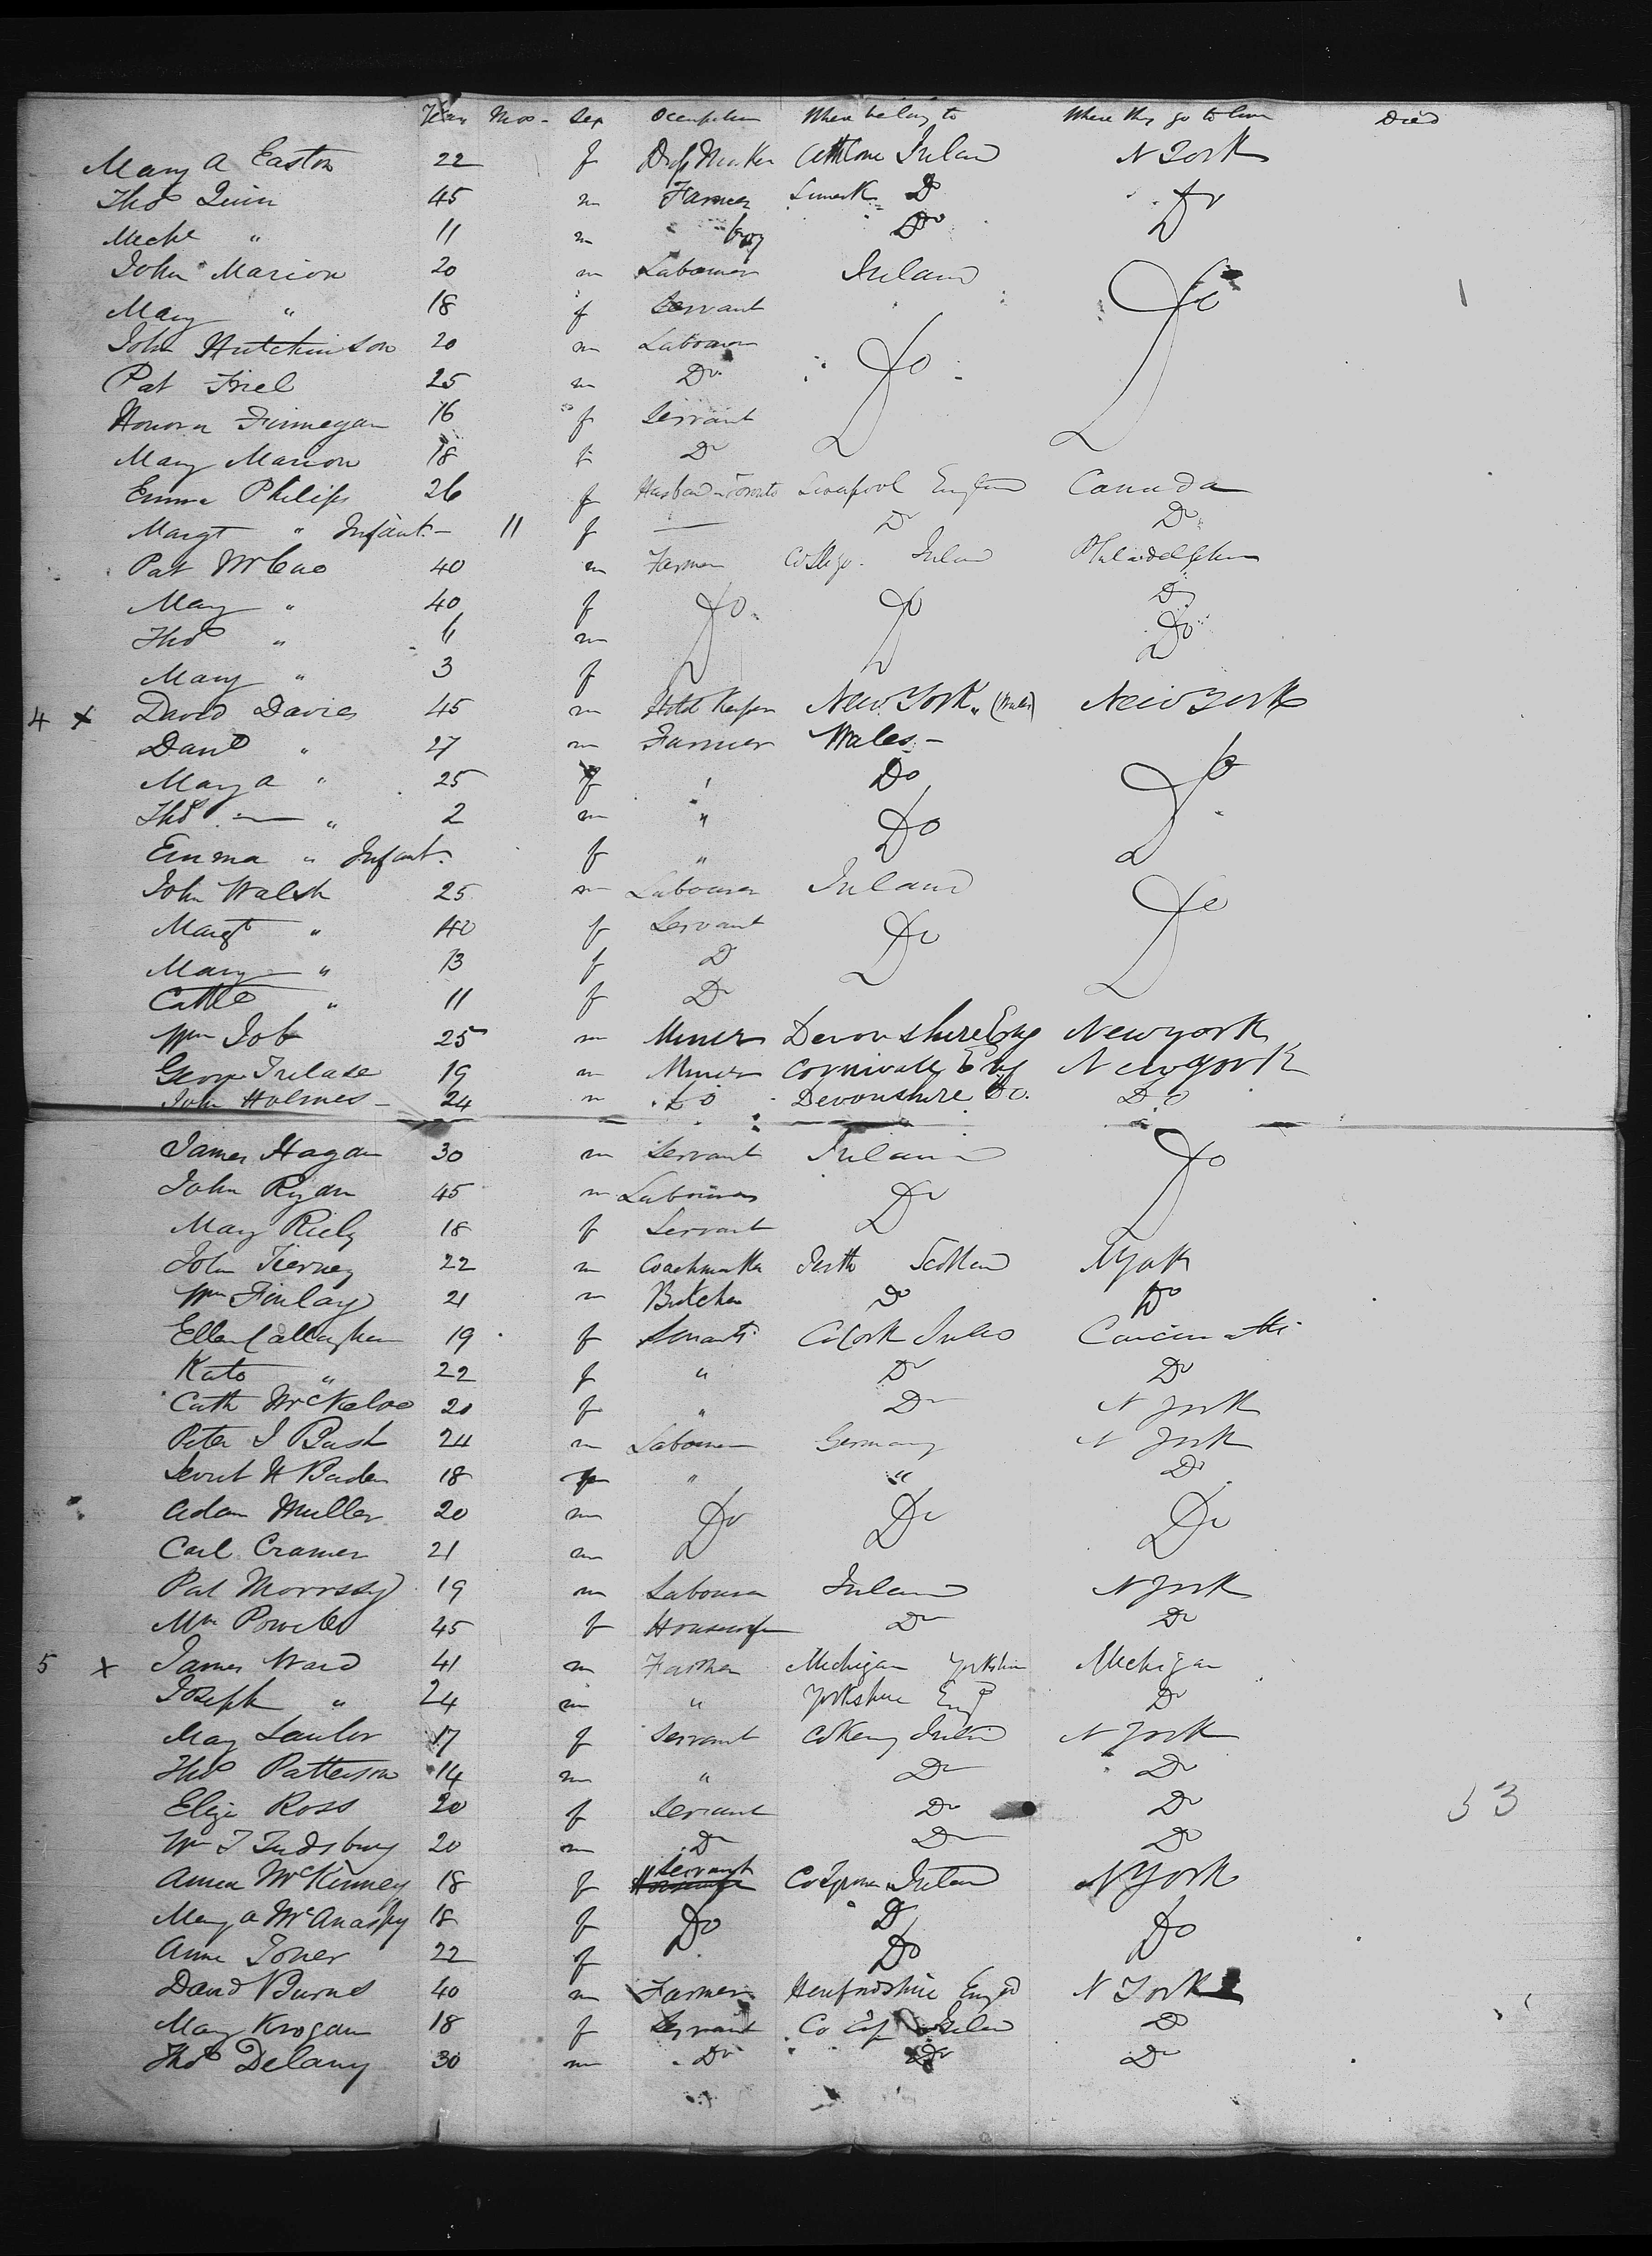 Years Mos - Sex Occupation Where belong to Where they go to live Died
Mary A Easton 22 f Dress Maker Athlone Ireland N York
Thos Quin 45 m Farmer Limerk Do Do
Michl " 11 m boy Do
John Marion 20 m Labourer Ireland Do 1
Mary " 18 f Servant
John Hutchinson 20 m Labourer Do
Pat Friel 25 m Do
Honora Finnegan 16 f Servant
Mary Marion 18 f Do
Emma Philips 26 f Husband Toronto Liverpool England Canada
Margt " Infant - 11 f — Do Do
Pat McCue 40 m Farmer Co Sligo. Ireland Philadelphia
Mary " 40 f Do Do Do
Thos " 6 m Do
Mary " 3 f
4 x David Davies 45 m Hotel Keeper New York " (Wales) New York
Danl " 27 m Farmer Wales - Do
Mary A " 25 f " Do
Thos — " 2 m " Do
Emma " Infant. f "
John Walsh 25 m Labourer Ireland Do
Margt " 40 f Servant Do
Mary — " 13 f Do
Cathe " 11 f Do
Wm Job 25 m Miner Devonshire Eng New york
George Trelase 19 m Miner Cornwall Eng New york
John Holmes - 24 m Do Devonshire Do. Do
James Hagan 30 m Servant Ireland Do
John Ryan 45 m Labourer Do
Mary Riely 18 f Servant
John Tierney 22 m Coachmaker Perth Scotland N York
Wm Finlay 21 m Butcher Do Do
Ellen Callaghan 19 f Servants Co Cork Ireland Cincinatti
Kate " 22 f " Do Do
Cath McKelve 20 f " Do N York
Peter J Bush 24 m Labourer Germany N York
H Baden 18 m " " Do
Adam Muller 20 m Do Do Do
Carl Cramer 21 m
Pat Morrssy 19 m Labourer Ireland N York
Mrs Power 45 f Housewife Do Do
5 x James Ward 41 m Farmer Michigan Yorkshire Michigan
Joseph " 24 m " Yorkshire Eng Do
Mary Lawlor 17 f Servant Co Kerry Ireland N York
Thos Patterson 14 m " Do Do
Eliza Ross 20 f Servant Do Do 53
Wm T Tudsbury 20 m Do Do Do
Anna McKinney 18 f Servant Housewife Co Tyrone Ireland N York
Mary A McAnaspy 18 f Do Do Do
Anne Toner 22 f Do
David Burns 40 m Farmer Herefordshire Engd N York
Mary Krogan 18 f Servant Co Ireland Do
Thos Delany 30 m Do Do Do